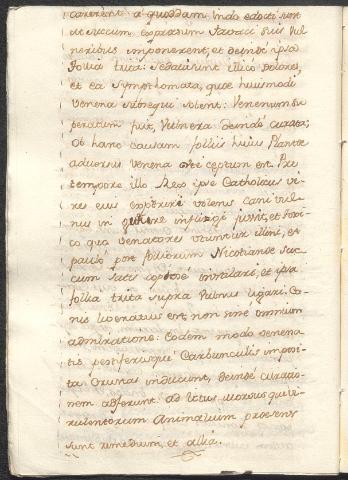 carerent a quodam Indo edocti sunt
ut succum expressum Tavaci suis Vul
neribus imponerent, et deinde ipsa
folia trita: Sedati sunt illico dolores,
et ea Symphthomata, quae huiusmodi
venena subsequi solent: Venenum su
peratum fuit, Vulnera deinde curata;
Ob hanc causam foliis huius Plantae
adversus venena ceptum est.
tempore illo Rex ipse Catholicus vi
res eius experire volens cani vul
nus in guture infligi jussit, et toxi
co quo venatores utuntur illini, et
paulo post foliorum Nicotianae suc
cum satis copiosè instilari, et ipsa
folia trita supra vulnus ligari. Ca
nis liberatus est non sine omnium
admiratione. Eodem modo venena
tis pestiferisque Carbunculis imposi
ta Crustas inducunt, deinde curatio
nem adferunt. ad ictus morsus que vi
rulentorum Animalium praesens
sunt remedium, et alia.